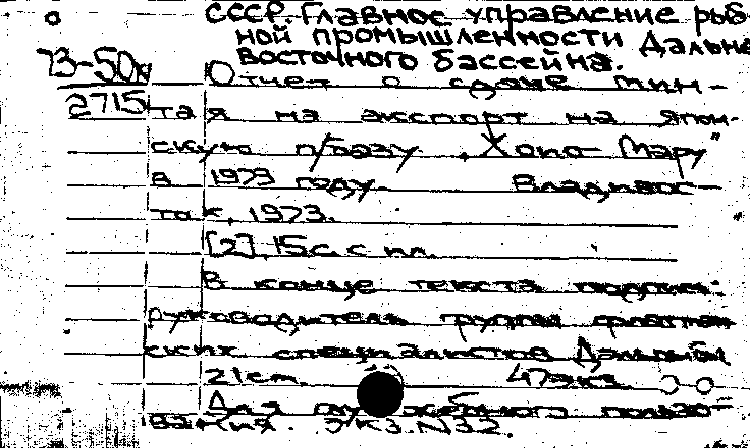 СССР. Главное управление рыб
ной промышленности Дальне
восточного бассейна.
73-50к
Отчет о сдаче мин-
2715
тая на экспорт на япон-
скую п/базу „Хойо-Мару"
в 1973 году. Владивос-
ток, 1973.
[2], 15 с. с ил.
В конце текста подпис:
руководитель группы флотмен
ских специалистов Дальрыбы
21 см. 47 экз.
Для служебного пользо-
вания. Экз. N 32.